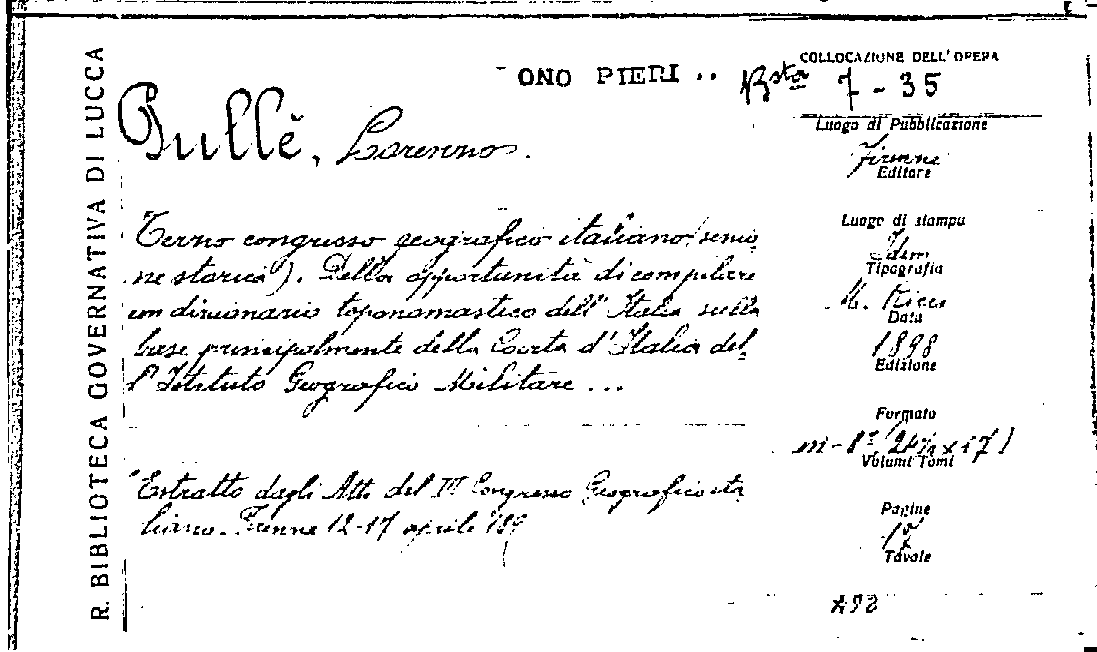 R. BIBLIOTECA GOVERNATIVA DI LUCCA
ONO PIERI
COLLOCAZIONE DELL'OPERA
Bsta 7 - 35
Pullè, Lorenzo.
Luogo di Pubblicazione
Firenze
Editore
Luogo di stampa
Idem
Tipografia
M. Ricci
Data
1898
Edizione
Formato
in-8° (24½ x 17)
Volumi Tomi
Pagine
17
Tavole
Terzo congresso geografico italiano (sezio
ne storica). Della opportunità di compilare
un dizionario toponomastico dell'Italia sulla
base principalmente della Carta d'Italia del
l'Istituto Geografico Militare ...
Estratto dagli Atti del III Congresso Geografico ita
liano. Firenze 12-17 aprile 189